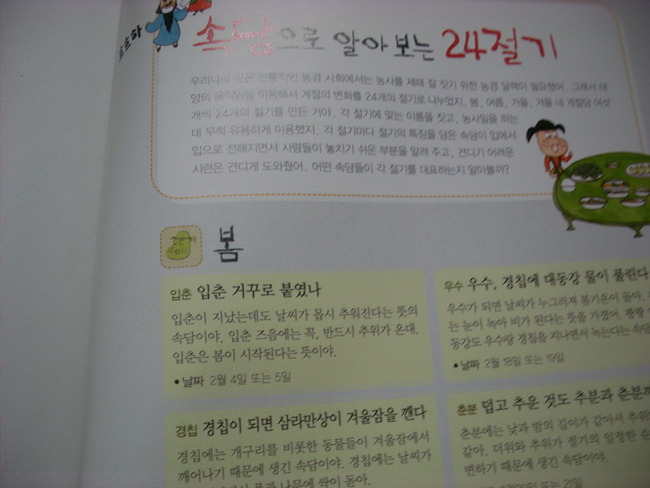 호호하
속담으로 알아보는 24절기
우리나라 같은 전통적인 농경 사회에서는 농사를 제때 잘 짓기 위한 농경 달력이 필요했어. 그래서 태
양의 움직임을 이용해서 계절의 변화를 24개의 절기로 나누었지. 봄, 여름, 가을, 겨울 네 계절당 여섯
개씩 24개의 절기를 만든 거야. 각 절기에 맞는 이름을 짓고, 농사일을 하는
데 무척 유용하게 이용했지. 각 절기마다 절기의 특징을 담은 속담이 입에서
입으로 전해지면서 사람들이 놓치기 쉬운 부분을 알려 주고, 견디기 어려운
시련은 견디게 도와줬어. 어떤 속담들이 각 절기를 대표하는지 알아볼까?
봄
입춘 입춘 거꾸로 붙였나
입춘이 지났는데도 날씨가 몹시 추워진다는 뜻의
속담이야. 입춘 즈음에는 꼭, 반드시 추위가 온대.
입춘은 봄이 시작된다는 뜻이야.
• 날짜 2월 4일 또는 5일
우수 우수, 경칩에 대동강 물이 풀린다
우수가 되면 날씨가 누그러져 봄기운이 돌아.
는 눈이 녹아 비가 된다는 뜻을 가졌어. 꽁꽁
동강도 우수랑 경칩을 지나면서 녹는다는 속담
• 날짜 2월 18일 또는 19일
경칩 경칩이 되면 삼라만상이 겨울잠을 깬다
경칩에는 개구리를 비롯한 동물들이 겨울잠에서
깨어나기 때문에 생긴 속담이야. 경칩에는 날씨가
풀과 나무에 싹이 돋아.
춘분 덥고 추운 것도 추분과 춘분까
춘분에는 낮과 밤의 길이가 같아서 추위
같아. 더위와 추위가 절기의 일정한 순
변하기 때문에 생긴 속담이야.
또는 21일